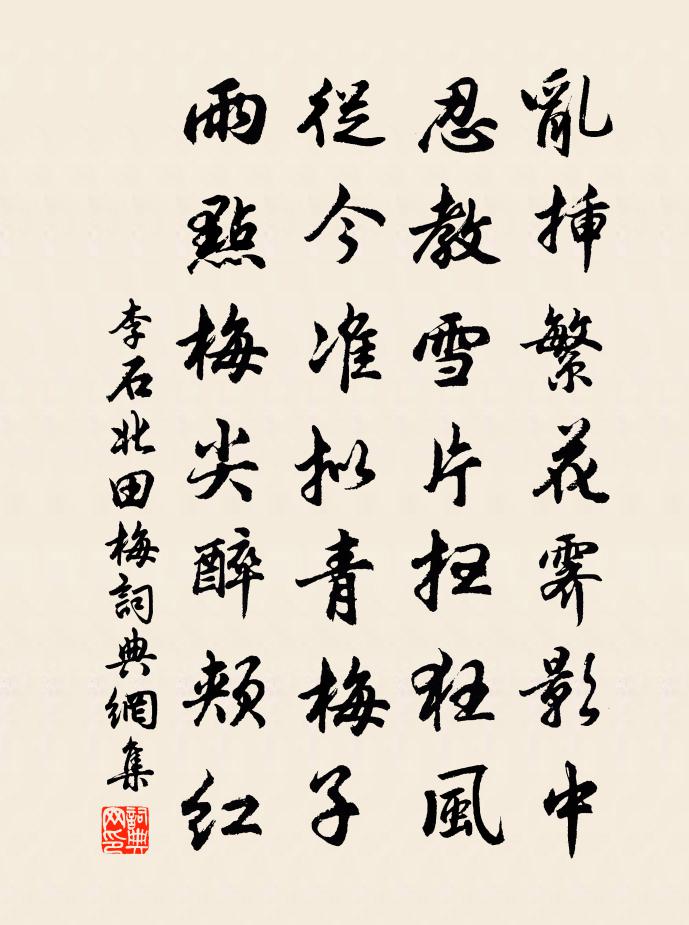 亂插繁花霽影中
忍教雪片扫狂風
從今准拟青梅子
雨點梅尖醉頰红
李石北田梅詞典網集
詞典网印